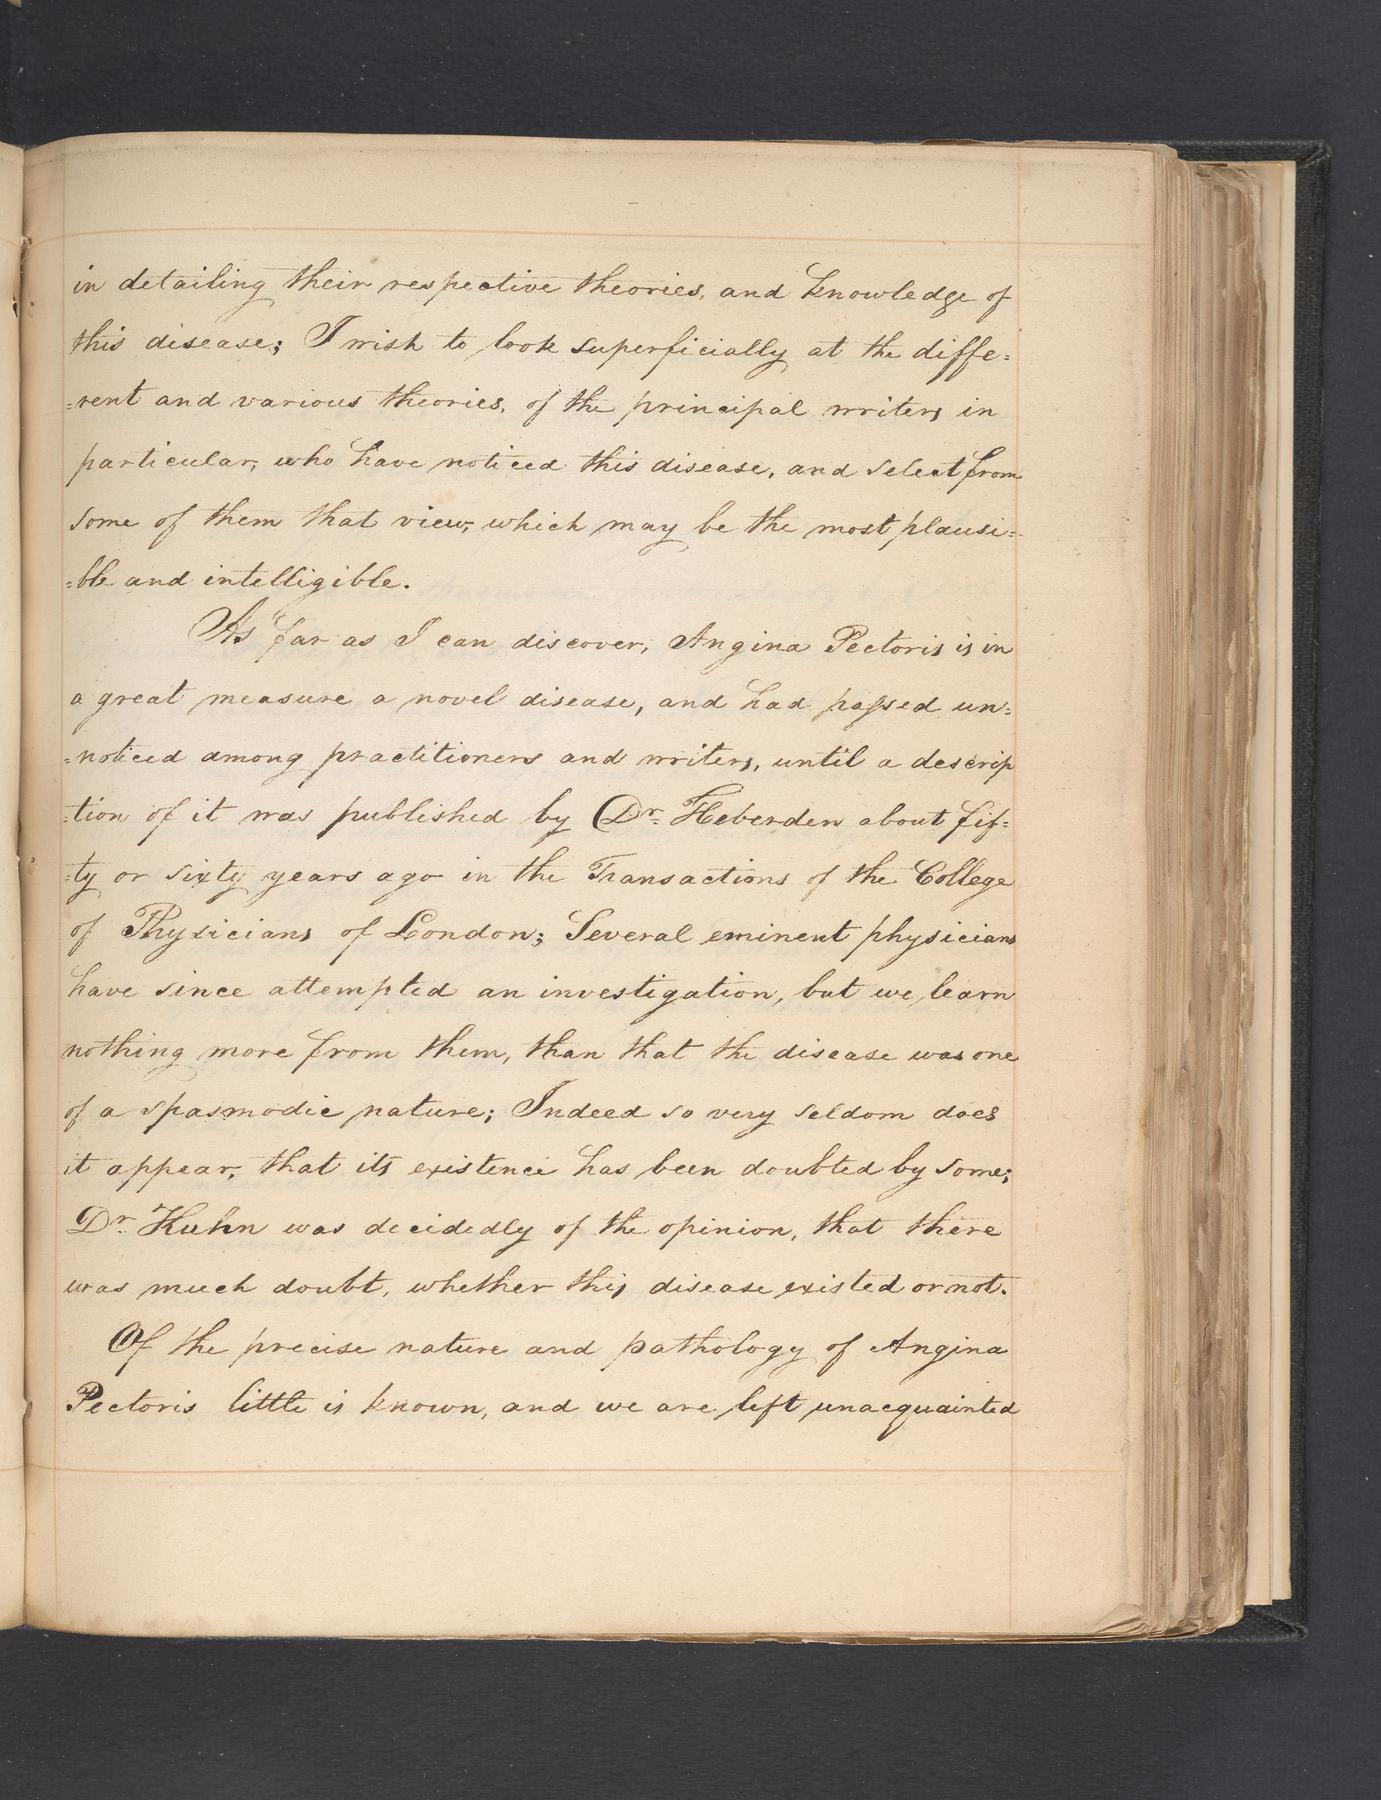 in detailing their respective theories, and knowledge of
this disease; I wish to look superficially at the diffe=
=rent and various theories, of the principal writers in
particular, who have noticed this disease, and select from
some of them that view, which may be the most plausi=
=ble and intelligible.
As far as I can discover, Angina Pectoris is in
a great measure a novel disease, and had passed un=
=noticed among practitioners and writers, until a descrip
=tion of it was published by Dr. Heberden about fif=
=ty or sixty years ago in the Transactions of the College
of Physicians of London; Several eminent physicians
have since attempted an investigation, but we learn
nothing more from them, than that the disease was one
of a spasmodic nature; Indeed so very seldom does
it appear, that its existence has been doubted by some;
Dr. Kuhn was decidedly of the opinion, that there
was much doubt, whether this disease existed or not.
Of the precise nature and pathology of Angina
Pectoris little is known, and we are left unacquainted